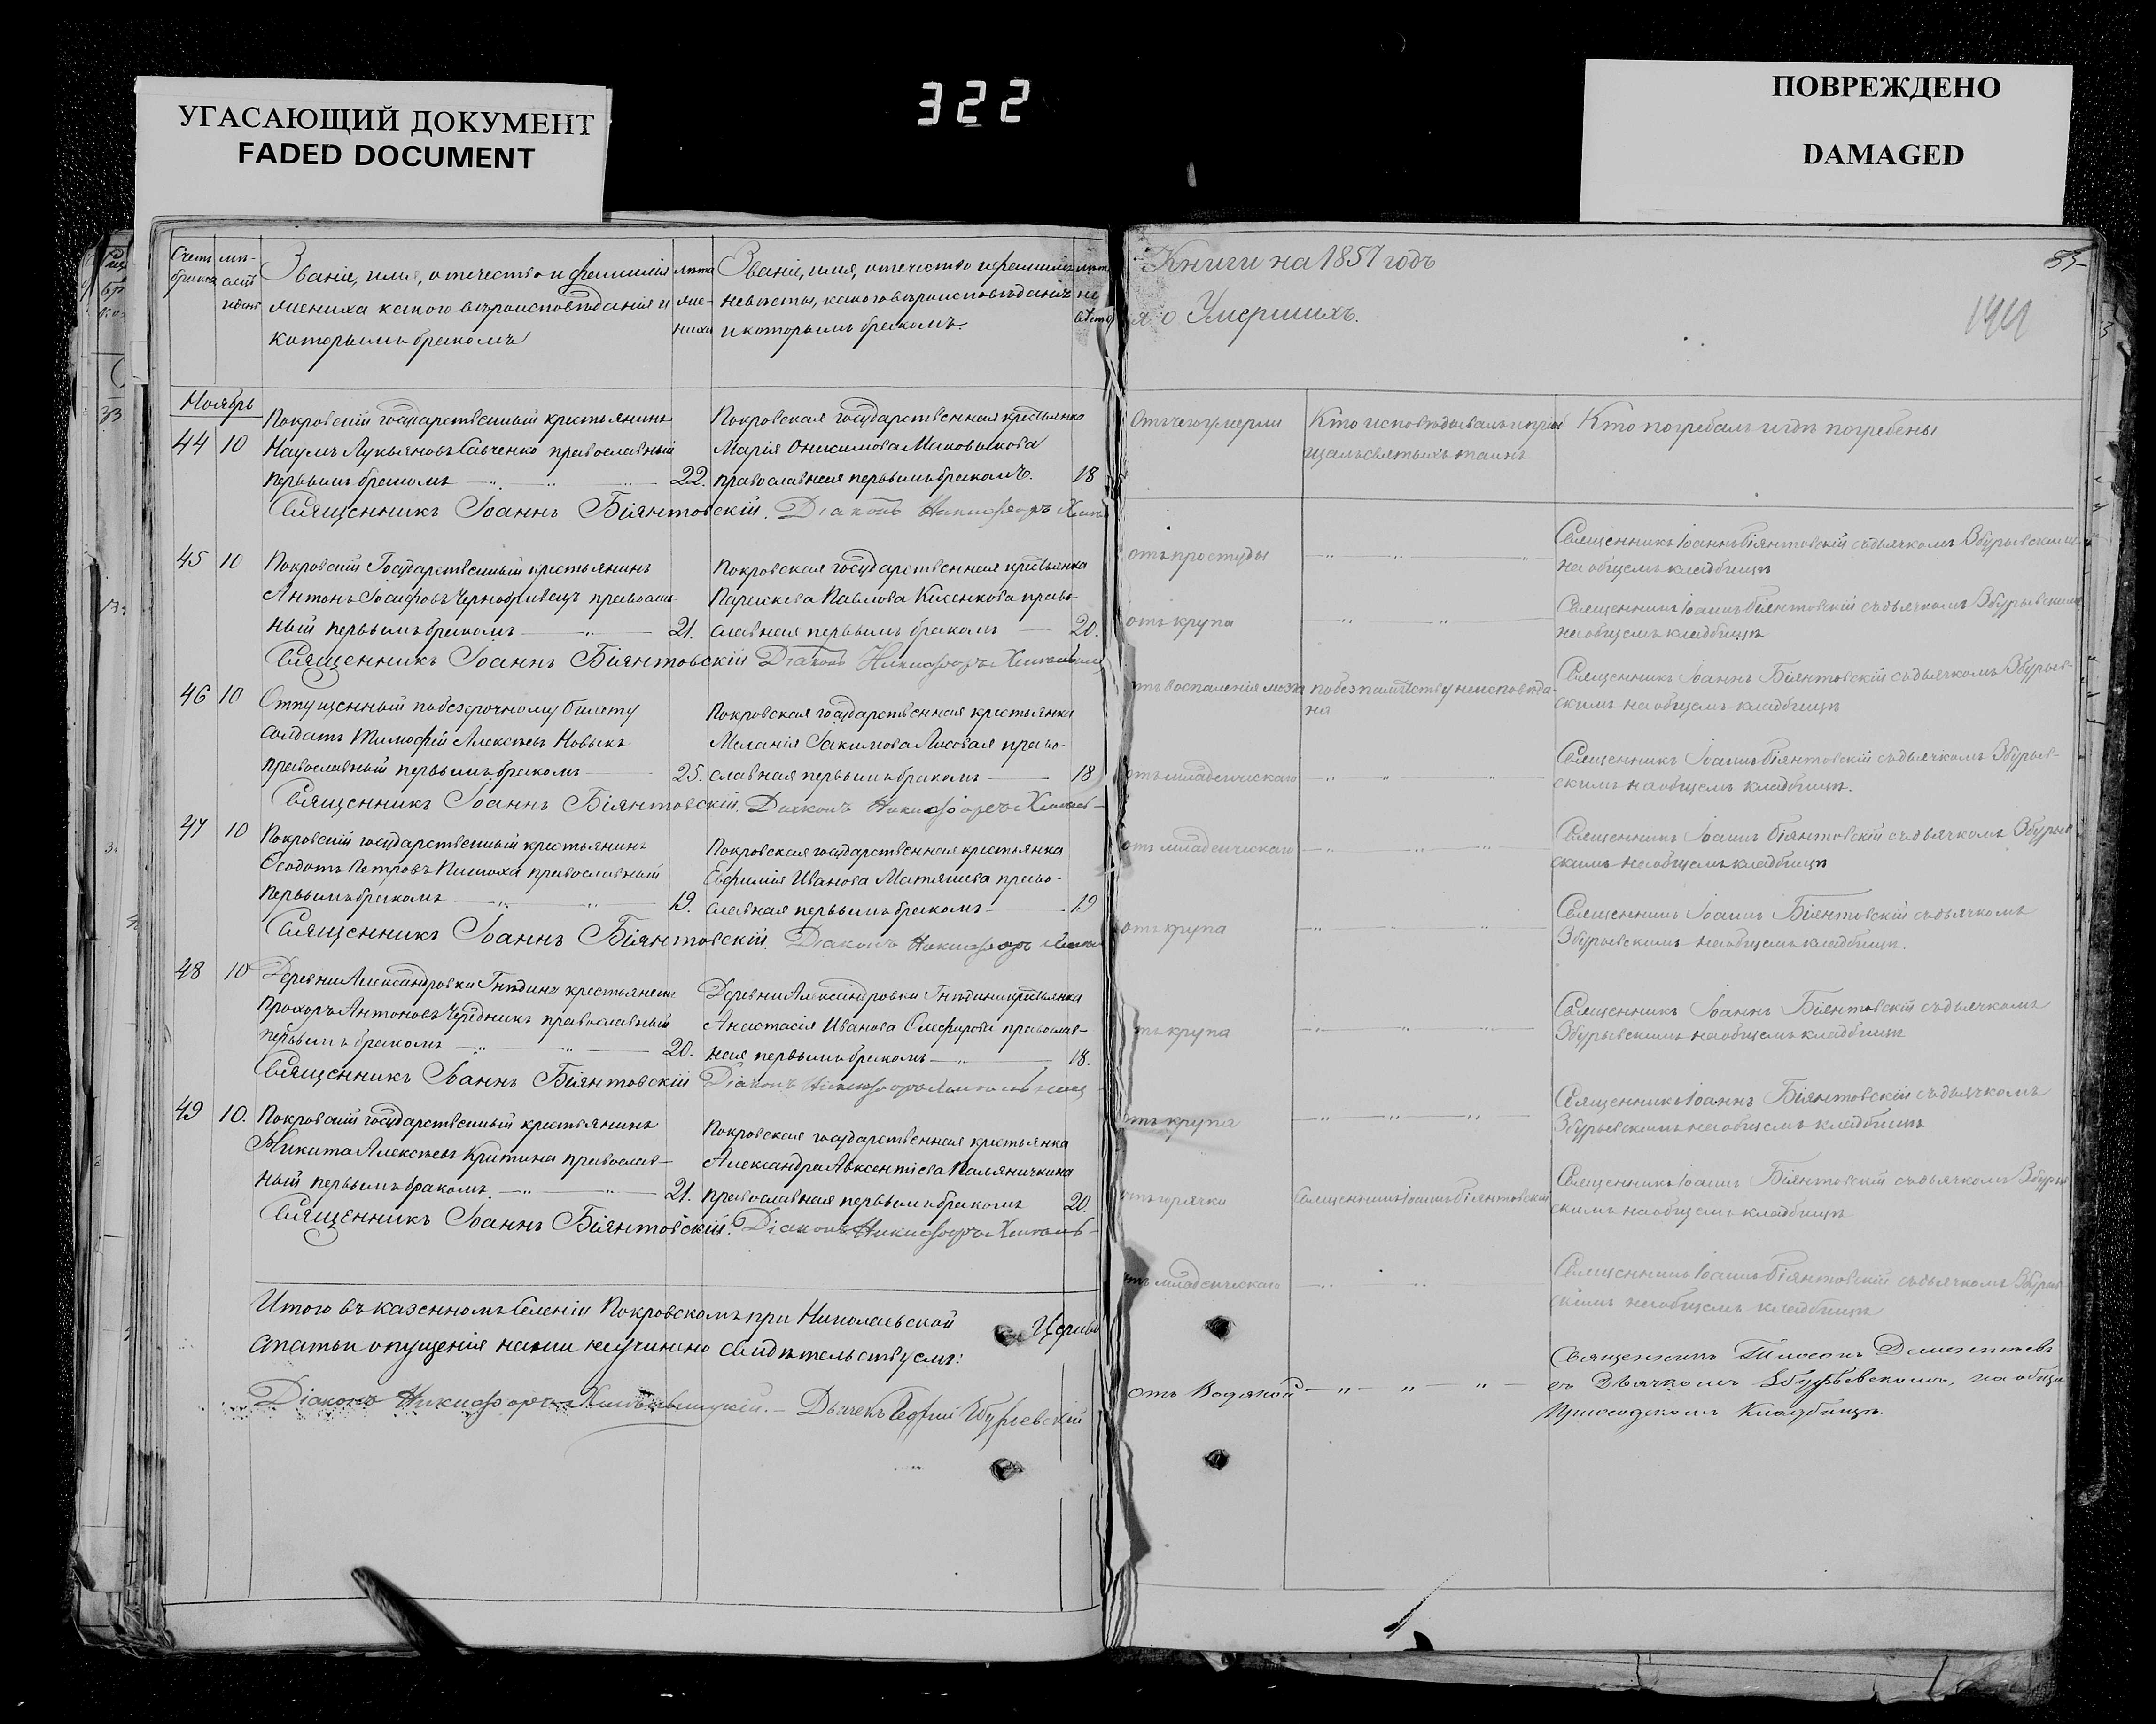 УГАСАЮЩИЙ ДОКУМЕНТ
FADED DOCUMENT
322
ПОВРЕЖДЕНО
DAMAGED
Счетъ брака
мѣсяцъ и день
Званіе, имя, отчество и фамилія
жениха какого вѣроисповѣданія и
которымъ бракомъ
лѣта жениха
Званіе, имя, отчество и фамилія
невѣсты, какого вѣроисповѣданія
и которымъ бракомъ.
лѣта невѣсты
Ноябрь
44 10
Покровскій государственный крестьянинъ
Наумъ Лукьяновъ Савченко православный
первымъ бракомъ 22.
Покровская государственная крестьянка
Марія Онисимова
православная первымъ бракомъ. 18
Священникъ Іоаннъ Біянтовскій. Діаконъ Никифоръ
45 10
Покровскій Государственный крестьянинъ
Антонъ Іосифовъ Чернобривецъ православ-
ный первымъ бракомъ 21.
Покровская государственная крестьянка
Параскева Павлова право-
славная первымъ бракомъ 20.
Священникъ Іоаннъ Біянтовскій Діаконъ Никифоръ
46 10
Отпущенный по безсрочному билету
солдатъ Тимофей Алексѣевъ Новыкъ
православный первымъ бракомъ 25.
Покровская государственная крестьянка
Меланія Іакимова Лисовая право-
славная первымъ бракомъ 18
Священникъ Іоаннъ Біянтовскій. Діаконъ Никифоръ
47 10
Покровскій государственный крестьянинъ
Ѳеодотъ Петровъ православный
первымъ бракомъ 19.
Покровская государственная крестьянка
Евфимія Иванова Матяшева право-
славная первымъ бракомъ 19
Священникъ Іоаннъ Біянтовскій. Діаконъ Никифоръ
48 10
Деревни Александровки крестьянинъ
Прохоръ Антоновъ Чередникъ православный
первымъ бракомъ 20.
Деревни Александровки крестьянка
Анастасія Иванова православ-
ная первымъ бракомъ 18.
Священникъ Іоаннъ Біянтовскій Діаконъ Никифоръ
49 10.
Покровскій государственный крестьянинъ
Никита Алексѣевъ православ-
ный первымъ бракомъ. 21.
Покровская государственная крестьянка
Александра Авксентіева Паляничкина
православная первымъ бракомъ 20.
Священникъ Іоаннъ Біянтовскій. Діаконъ Никифоръ
Итого въ казенномъ селеніи Покровскомъ при Николаевской Церкви
статьи опущенія нами неучинено свидѣтельствуемъ:
Діаконъ Никифоръ Дьячекъ Георгий Збурьевскій
Книги на 1851 годъ
я о Умершихъ.
85
Отъ чего умерли
Кто исповѣдывалъ и пріоб
щалъ святыхъ таинъ
Кто погребалъ и гдѣ погребены
отъ простуды
Священникъ Іоаннъ Біянтовскій съ дьячкомъ Збурьевскимъ
на общемъ кладбищѣ
отъ крупа
Священникъ Іоаннъ Біянтовскій съ дьячкомъ Збурьевскимъ
на общемъ кладбищѣ
отъ воспаленія мозга
по безпамятству неисповѣда-
на
Священникъ Іоаннъ Біянтовскій съ дьячкомъ Збурьев-
скимъ на общемъ кладбищѣ
отъ младенческаго
Священникъ Іоаннъ Біянтовскій съ дьячкомъ Збурьев-
скимъ на общемъ кладбищѣ.
отъ младенческаго
Священникъ Іоаннъ Біянтовскій съ дьячкомъ Збурьев
скимъ на общемъ кладбищѣ
отъ крупа
Священникъ Іоаннъ Біянтовскій съ дьячкомъ
Збурьевскимъ на общемъ кладбищѣ.
отъ крупа
Священникъ Іоаннъ Біянтовскій съ дьячкомъ
Збурьевскимъ на общемъ кладбищѣ
отъ крупа
Священникъ Іоаннъ Біянтовскій съ дьячкомъ
Збурьевскимъ на общемъ кладбищѣ
отъ горячки
Священникъ Іоаннъ Біянтовскій
Священникъ Іоаннъ Біянтовскій съ дьячкомъ Збурьев
скимъ на общемъ кладбищѣ
отъ младенческаго
Священникъ Іоаннъ Біянтовскій съ дьячкомъ Збурьев
скимъ на общемъ кладбищѣ
отъ Водяной
Священникъ Дементьевъ
съ Дьячкомъ Збурьевскимъ, на общ
Приходскомъ Кладбищѣ.